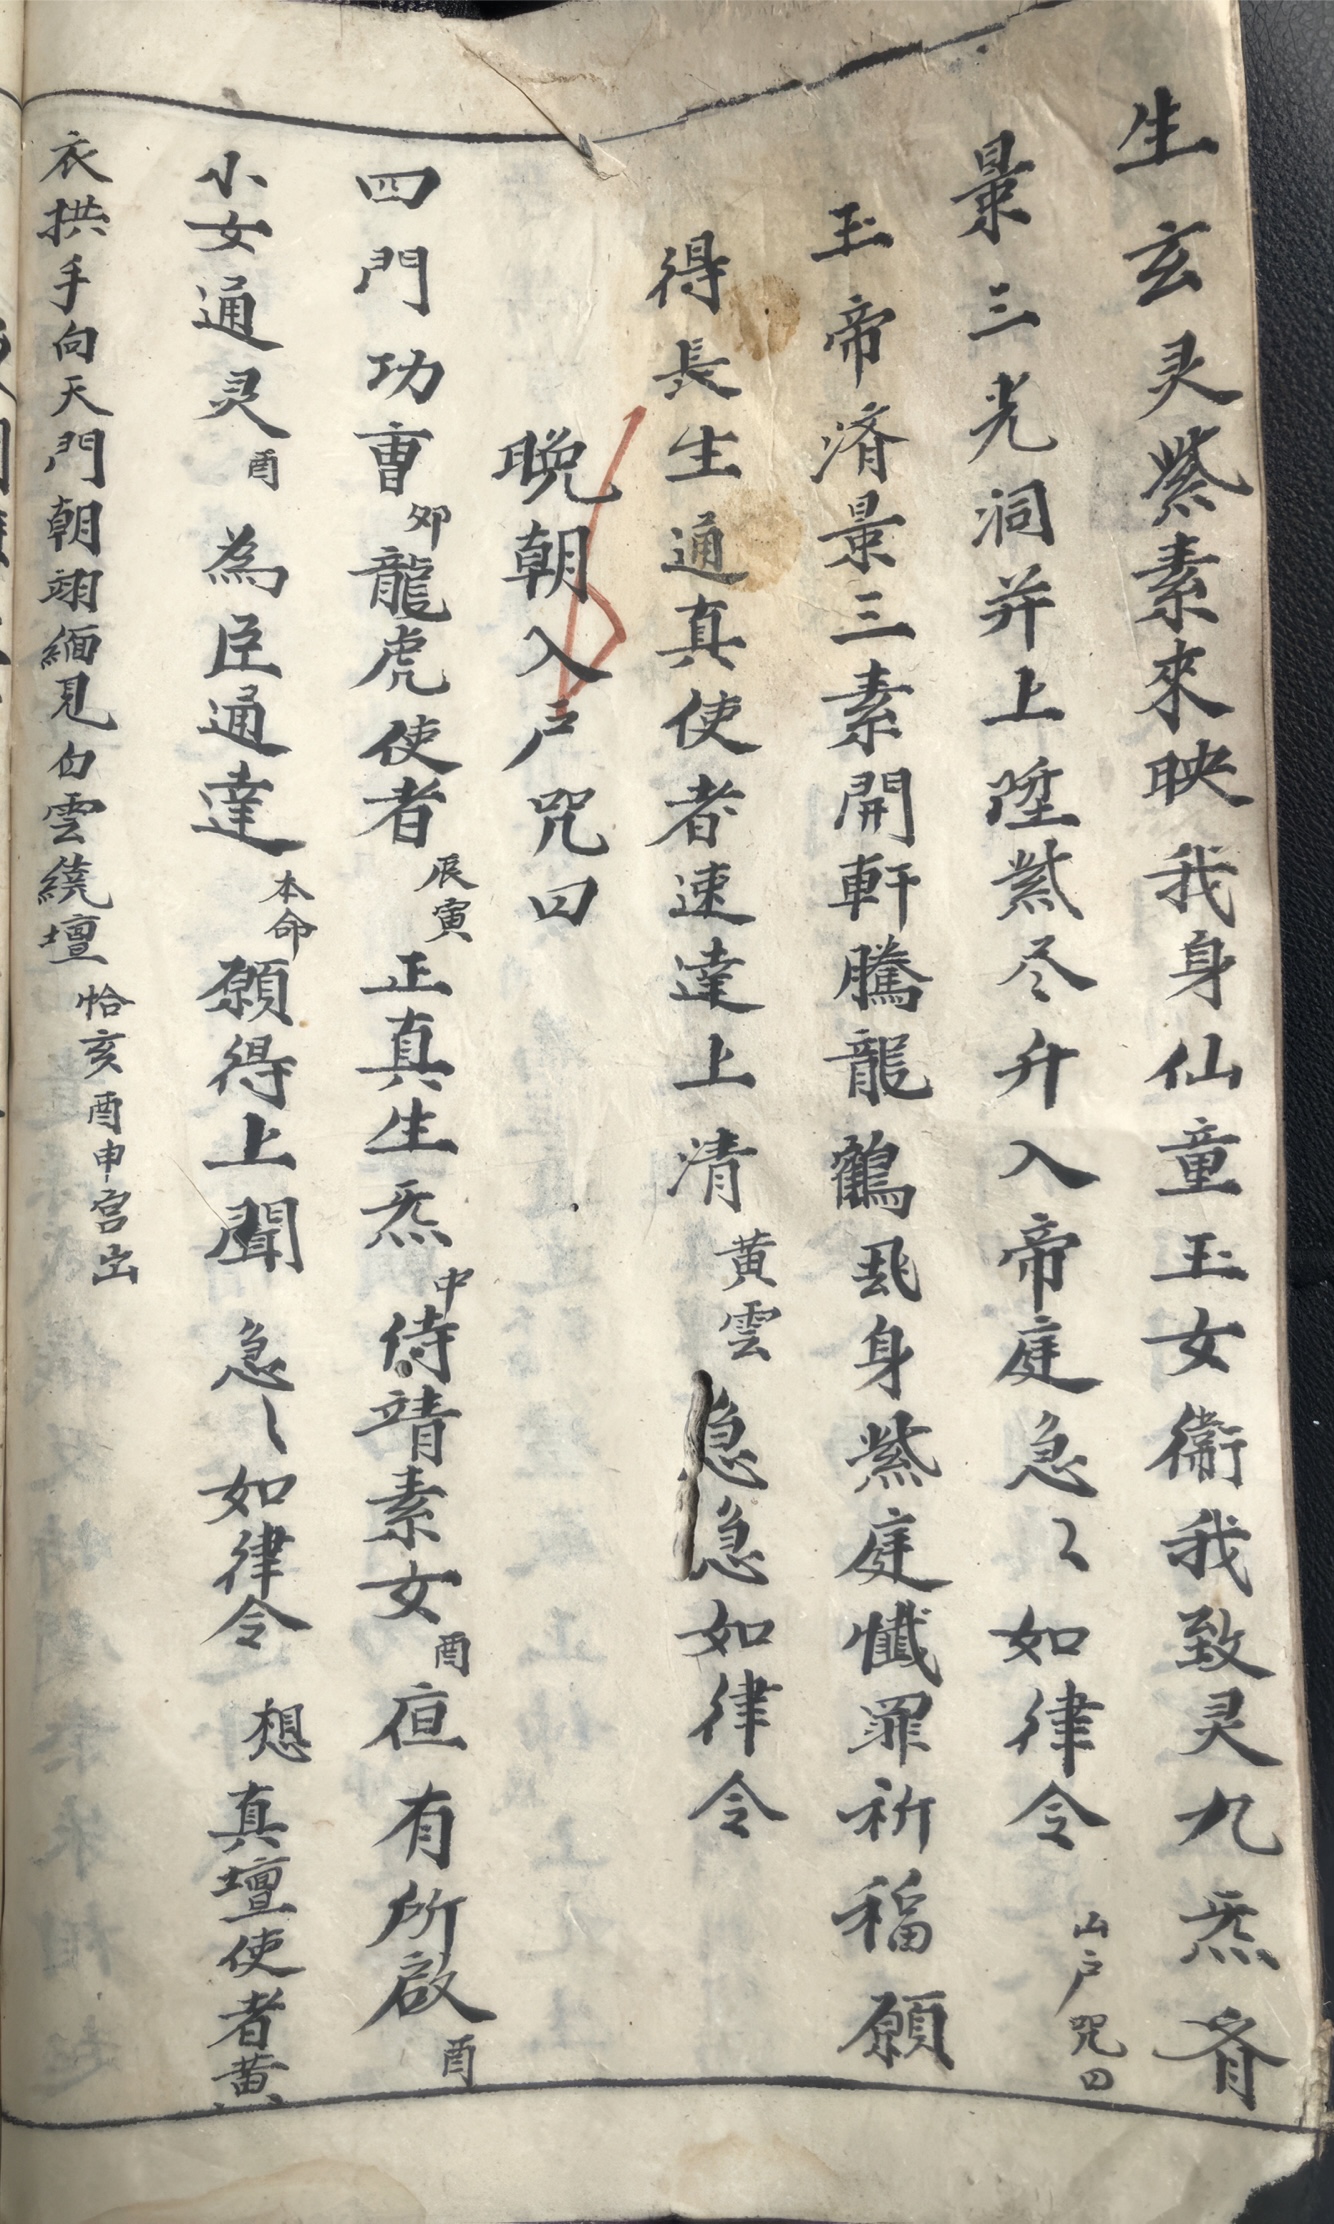 生玄灵紫素來映我身仙童玉女衛我致灵九炁齐
景三光洞并上陞紫尽升入帝庭急々如律令 出户咒曰
玉帝済景三素開軒騰龍鶴飛身紫庭懺罪祈福願
得長生通真使者速達上清黄雲急急如律令
晩朝入户咒曰
四門功曺卯龍虎使者辰寅正真生炁中侍靖素女酉宿有所啟酉
小女通灵酉為臣通達本命願得上聞急々如律令 想真壇使者黄
衣拱手向天門朝翊緬見白雲繞壇恰亥酉申宫出